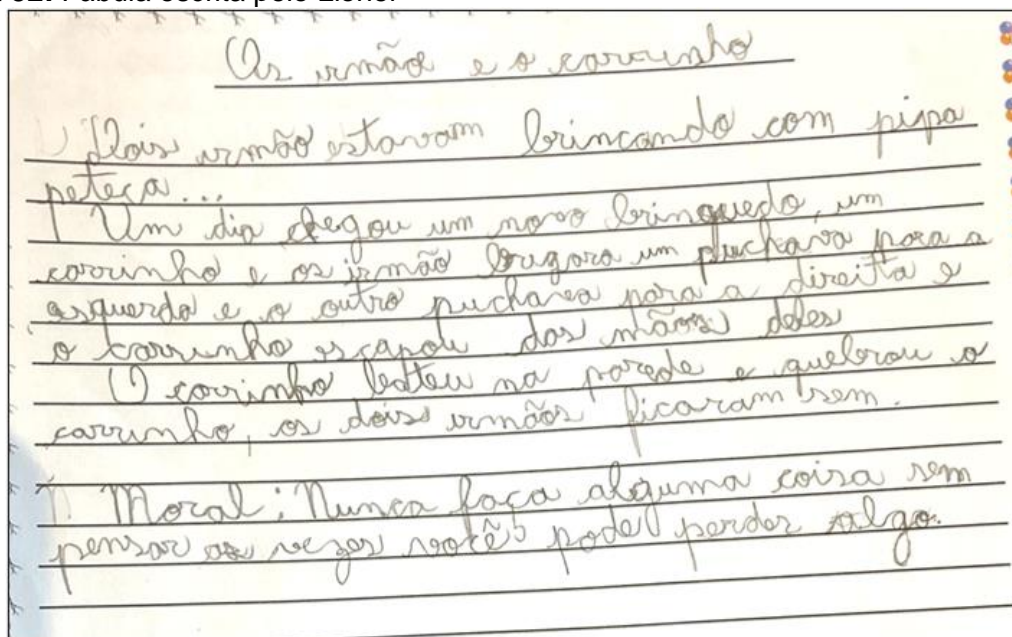 Os irmão e o carrinho
Dois irmão estavam brincando com pipa
peteca...
Um dia chegou um novo brinquedo, um
carrinho e os irmão brigara um puchava para a
esquerda e o outro puchava para a direita e
o carrinho escapou das mãos deles
O carrinho bateu na parede e quebrou o
carrinho, os dois irmãos ficaram sem.
Moral: Nunca faça alguma coisa sem
pensar as vezes você pode perder algo.